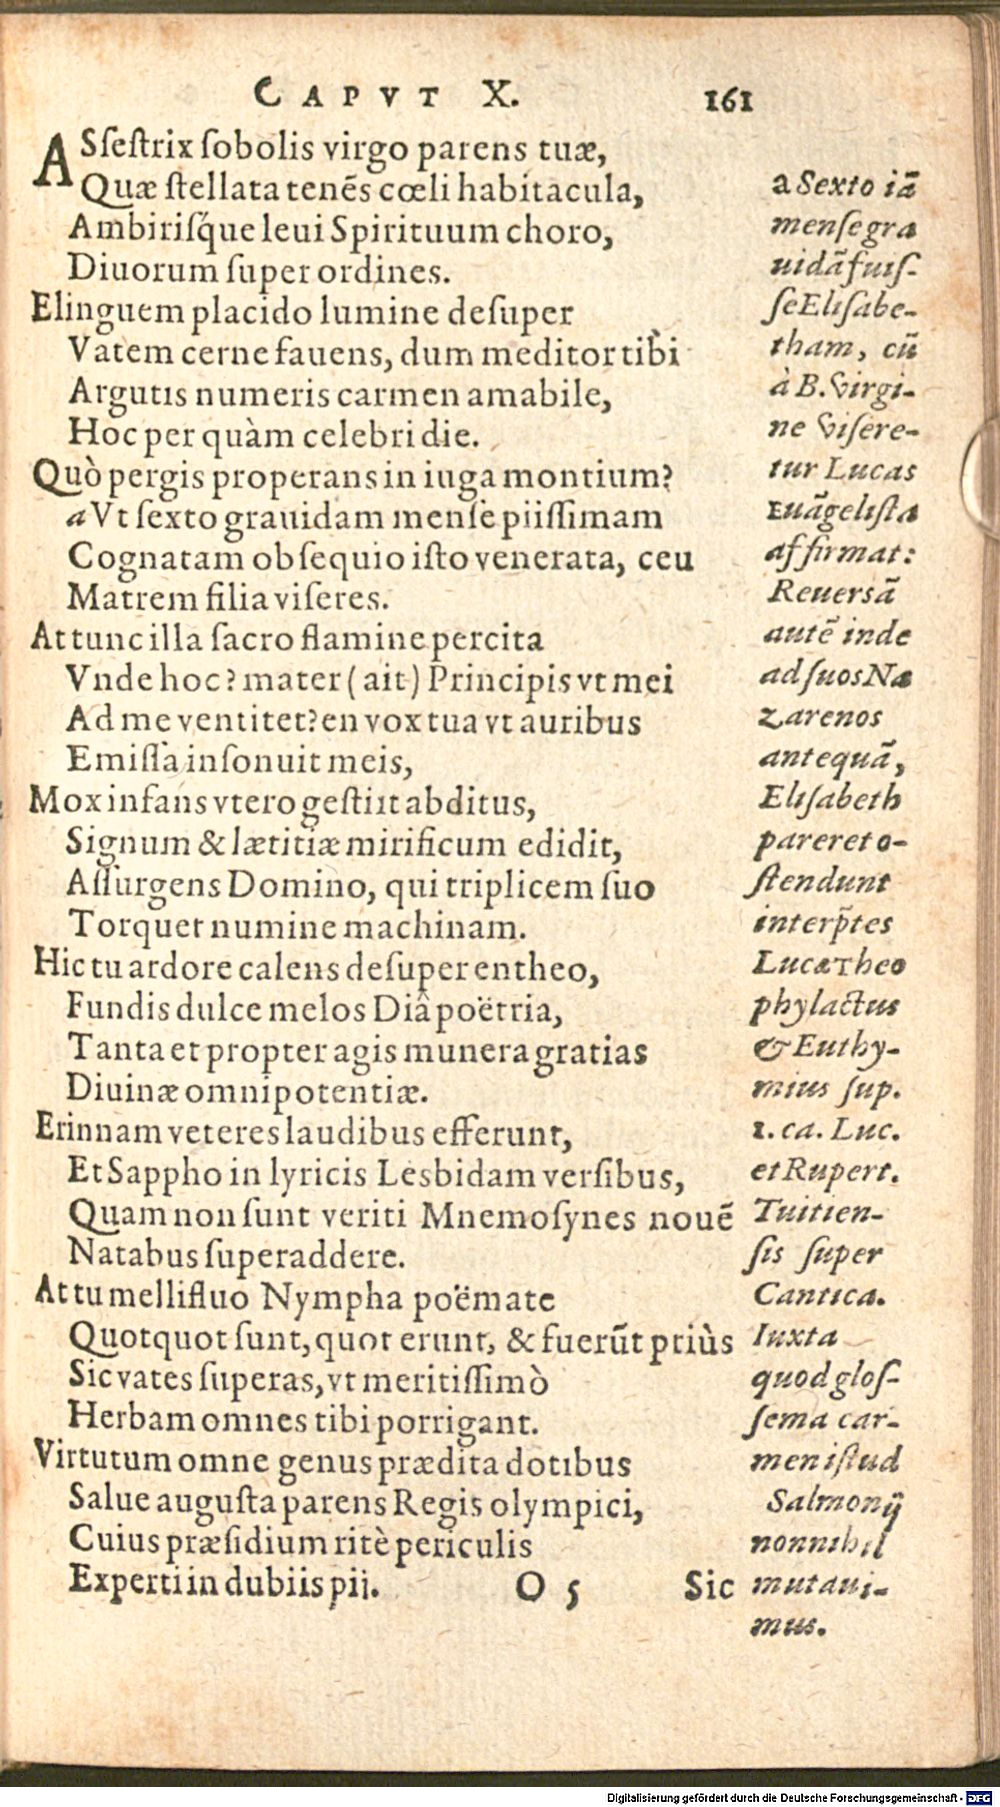 CAPVT X. 161
ASseſtrix ſobolis virgo parens tuæ,
Quæ ſtellata tenẽs cœli habitacula,
Ambiriſq́ue leui Spirituum choro,
Diuorum ſuper ordines.
Elinguem placido lumine deſuper
Vatem cerne fauens, dum meditor tibi
Argutis numeris carmen amabile,
Hoc per quàm celebri die.
Quò pergis properans in iuga montium?
a Vt ſexto grauidam menſe piiſſimam
Cognatam obſequio iſto venerata, ceu
Matrem filia viſeres.
At tunc illa ſacro flamine percita
Vnde hoc? mater (ait) Principis vt mei
Ad me ventitet? en vox tua vt auribus
Emiſſa inſonuit meis,
Mox infans vtero geſtiit abditus,
Signum & lætitiæ mirificum edidit,
Aſſurgens Domino, qui triplicem ſuo
Torquet numine machinam.
Hic tu ardore calens deſuper entheo,
Fundis dulce melos Diâ poëtria,
Tanta et propter agis munera gratias
Diuinæ omnipotentiæ.
Erinnam veteres laudibus efferunt,
Et Sappho in lyricis Lesbidam verſibus,
Quam non ſunt veriti Mnemoſynes nouẽ
Natabus ſuperaddere.
At tu mellifluo Nympha poëmate
Quotquot ſunt, quot erunt, & fuerũt priùs
Sic vates ſuperas, vt meritiſſimò
Herbam omnes tibi porrigant.
Virtutum omne genus prædita dotibus
Salue auguſta parens Regis olympici,
Cuius præſidium ritè periculis
Experti in dubiis pij.
O 5 Sic
a Sexto iã
menſe gra
uidã fuiſ-
ſe Eliſabe-
tham, cũ
à B. Virgi-
ne Viſere-
tur Lucas
Euãgeliſta
affirmat:
Reuersã
autẽ inde
ad ſuos Na
zarenos
antequã,
Eliſabeth
pareret o-
ſtendunt
interp̃tes
Lucæ Theo
phylactus
& Euthy-
mius ſup.
1. ca. Luc.
et Rupert.
Tuitien-
ſis ſuper
Cantica.
Iuxta
quod gloſ-
ſema car-
men iſtud
Salmonij
nonnihil
mutaui-
mus.
Digitalisierung gefördert durch die Deutsche Forschungsgemeinschaft - DFG